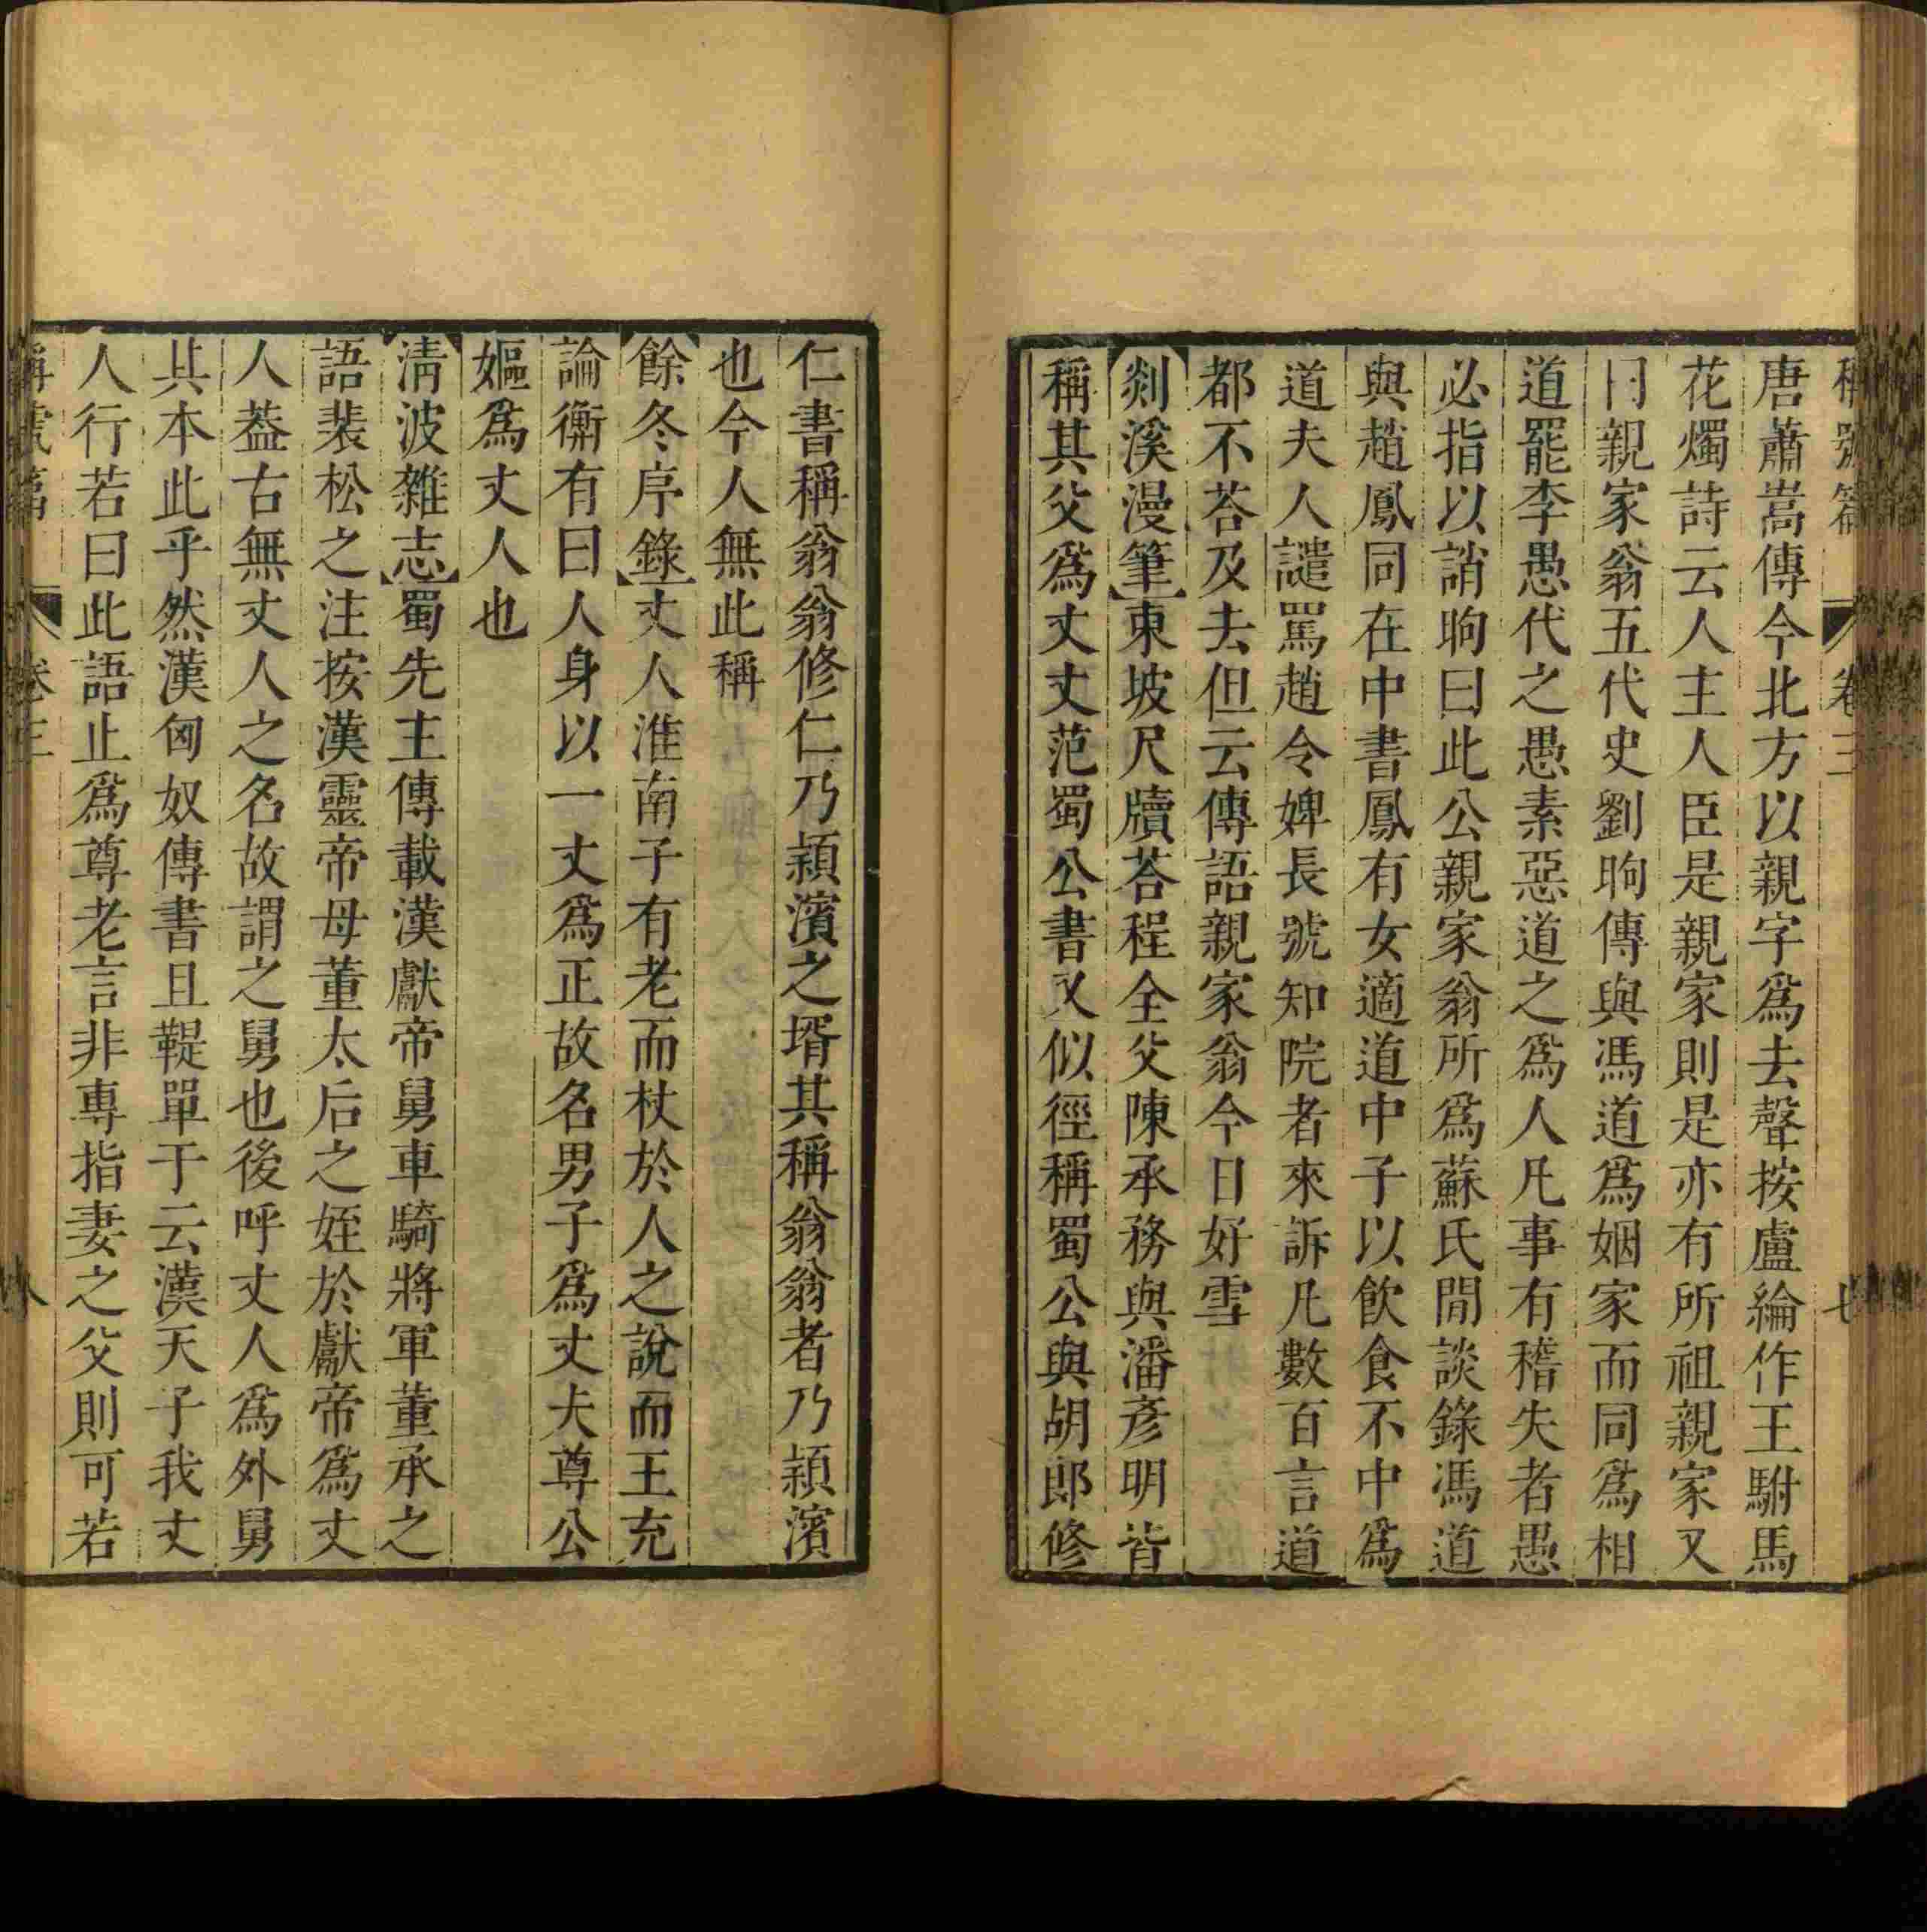 稱號篇 卷三 七
唐蕭嵩傳今北方以親字爲去聲按盧綸作王駙馬
花燭詩云人主人臣是親家則是亦有所祖親家又
曰親家翁五代史劉昫傳與馮道爲姻家而同爲相
道罷李愚代之愚素惡道之爲人凡事有稽失者愚
必指以誚昫曰此公親家翁所爲蘇氏閒談錄馮道
與趙鳳同在中書鳳有女適道中子以飲食不中爲
道夫人譴罵趙令婢長號知院者來訴凡數百言道
都不荅及去但云傳語親家翁今日好雪
剡溪漫筆東坡尺牘荅程全父陳承務與潘彥明皆
稱其父爲丈丈范蜀公書又似徑稱蜀公與胡郎修
仁書稱翁翁修仁乃潁濱之壻其稱翁翁者乃潁濱
也今人無此稱
餘冬序錄丈人淮南子有老而杖於人之說而王充
論衡有曰人身以一丈爲正故名男子爲丈夫尊公
嫗爲丈人也
清波雜志蜀先主傳載漢獻帝舅車騎將軍董承之
語裴松之注按漢靈帝母董太后之姪於獻帝爲丈
人葢古無丈人之名故謂之舅也後呼丈人爲外舅
其本此乎然漢匈奴傳書且鞮單于云漢天子我丈
人行若曰此語止爲尊老言非專指妻之父則可若
稱號篇 卷三 八